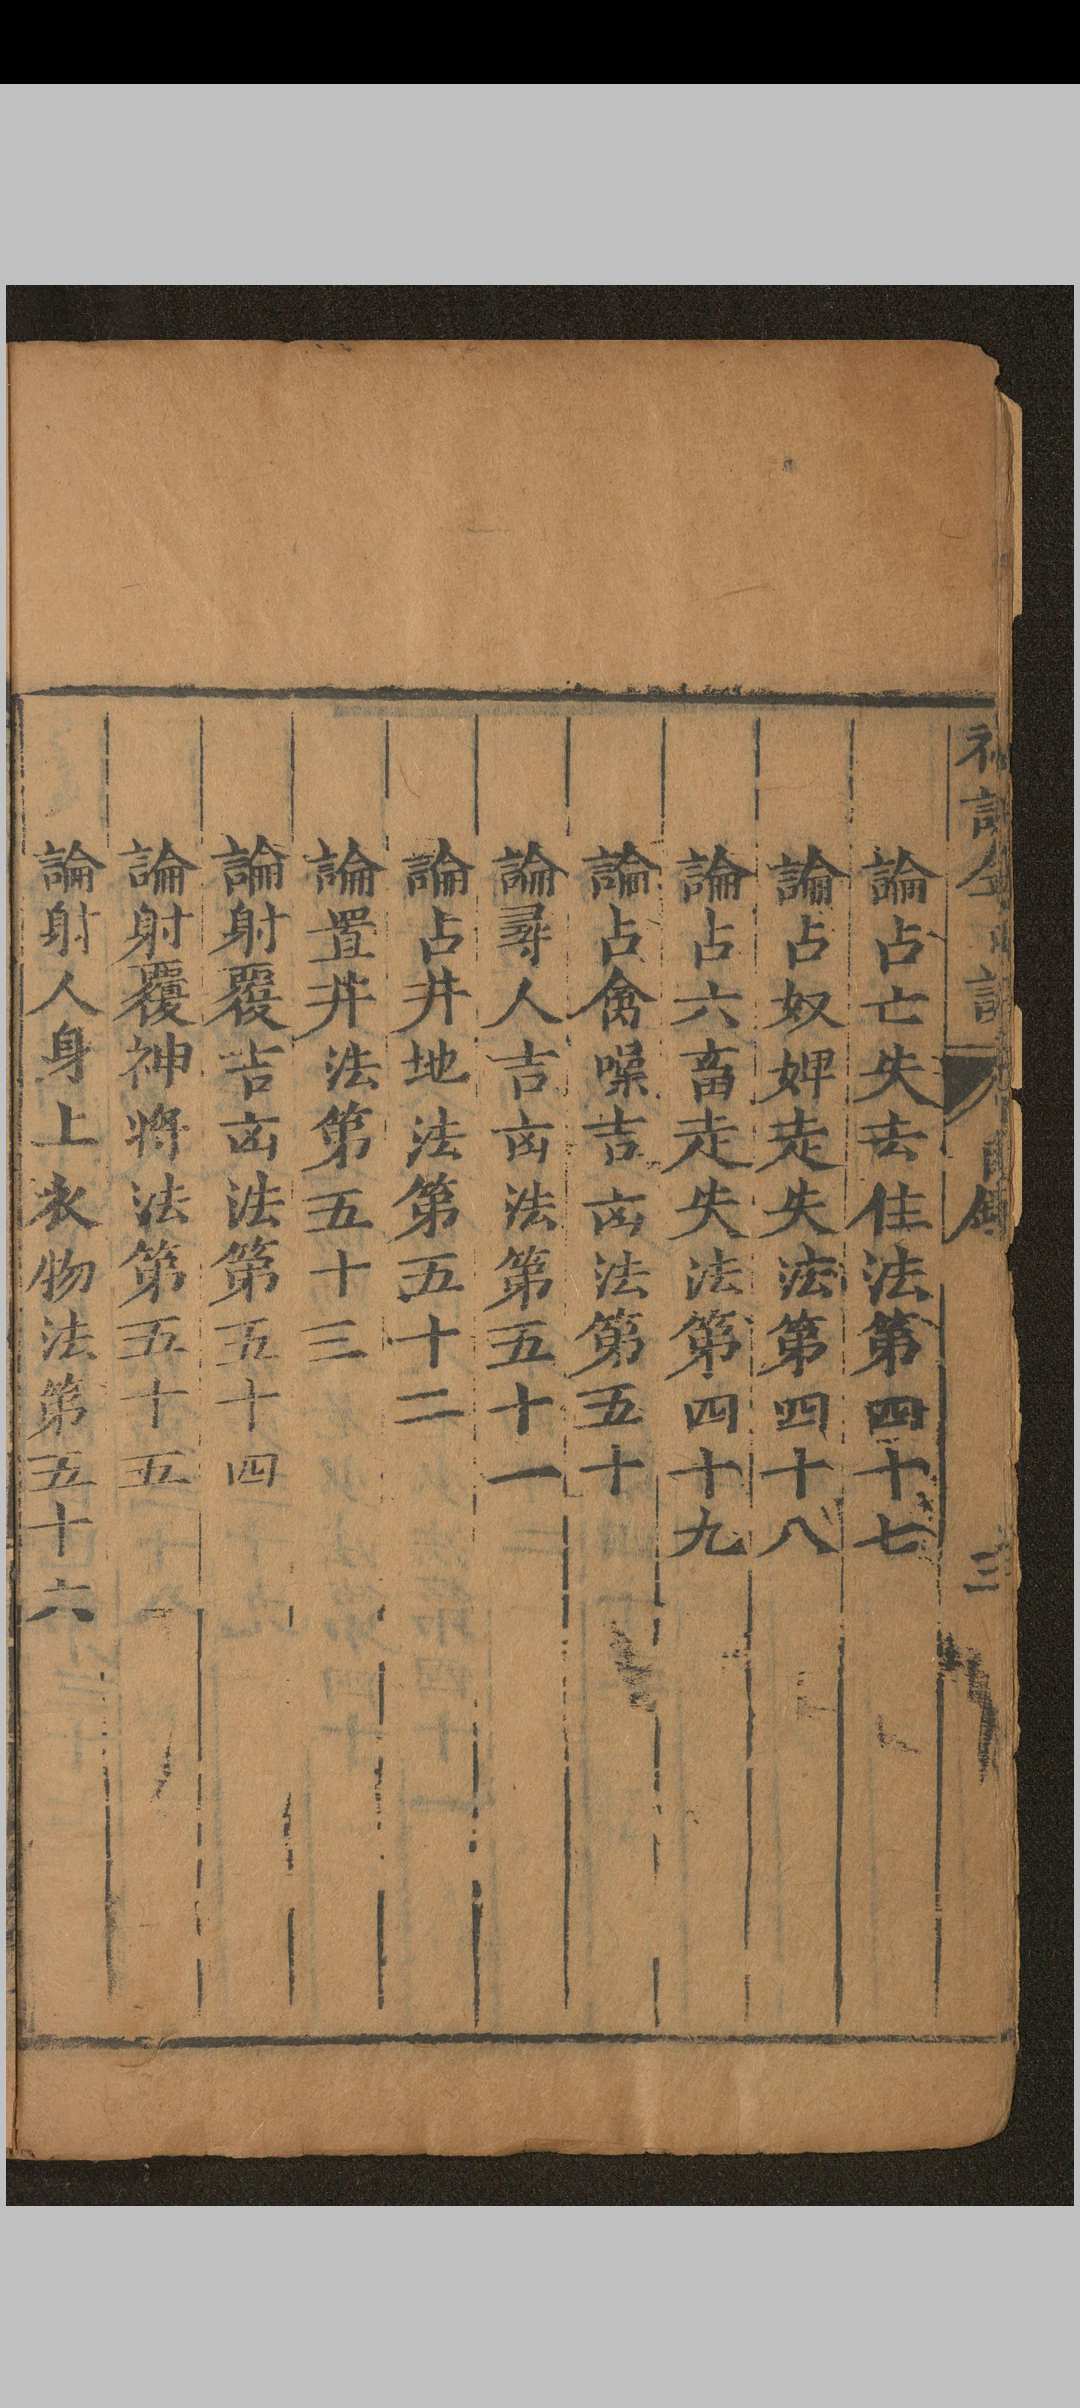 論占亡失去住法第四十七
論占奴婢走失法第四十八
論占六畜走失法第四十九
論占禽噪吉凶法第五十
論尋人吉凶法第五十一
論占井地法第五十二
論置井法第五十三
論射覆吉凶法第五十四
論射覆神將法第五十五
論射人身上衣物法第五十六